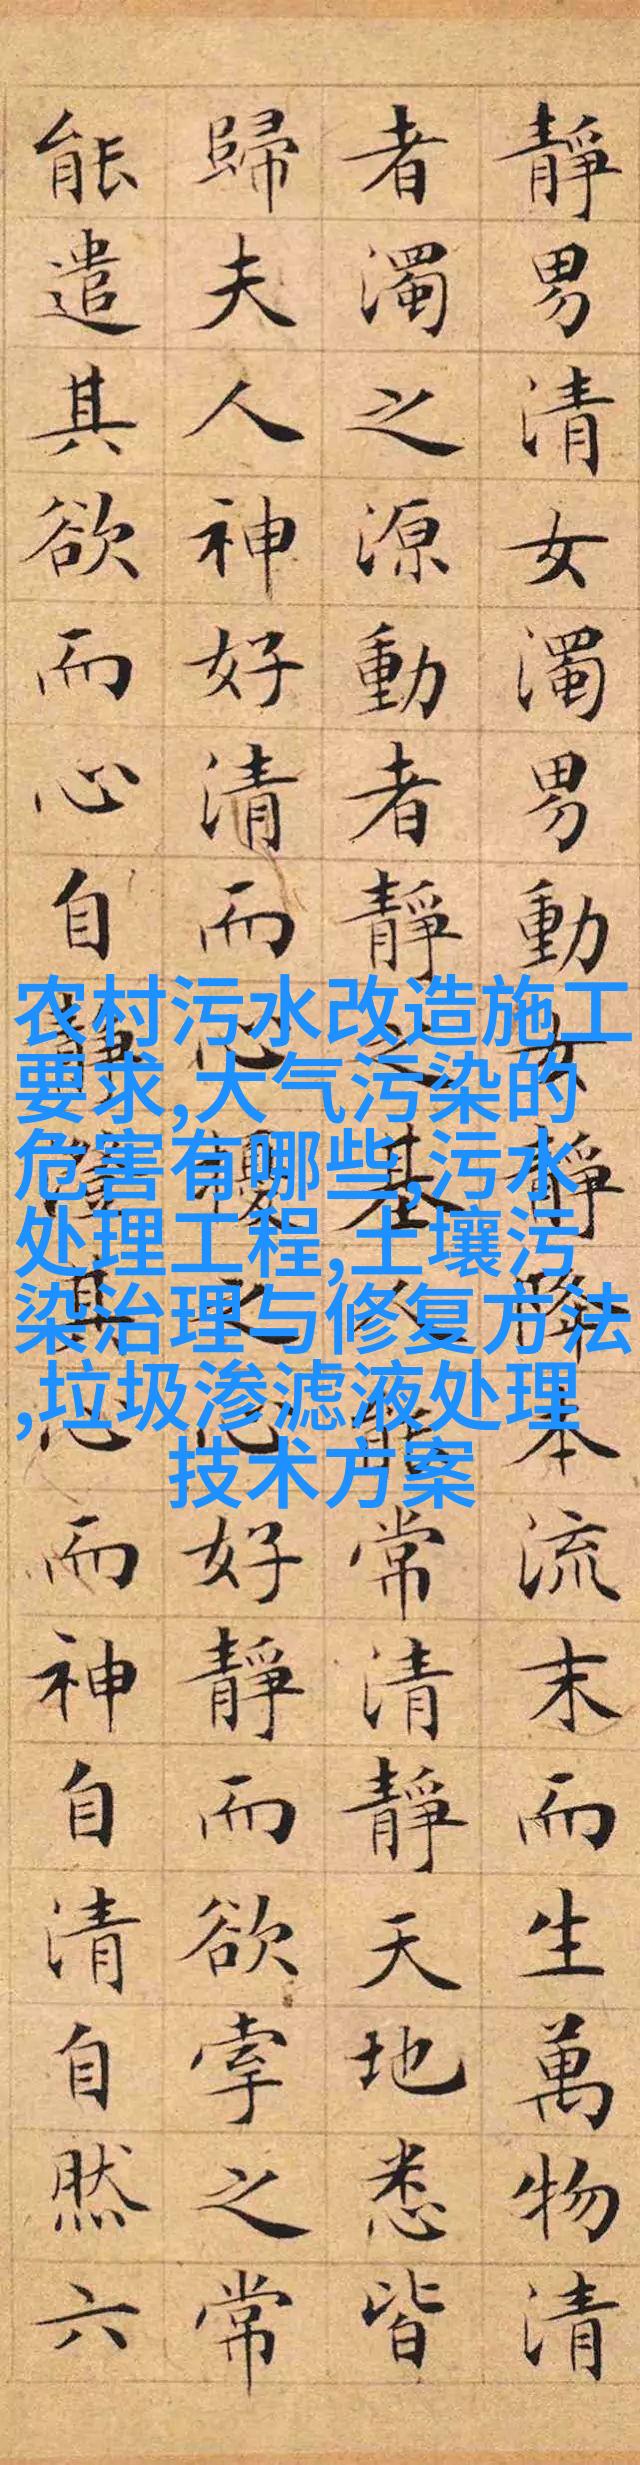 靜男清女濁男動女靜降本流末而生萬物清
者濁之源動者靜之基人能常清靜天地悉皆
歸夫人神好清而心擾之心好靜而欲牽之常
能遣其欲而心自靜澄其心而神自清自然六
农村污水改造施工
要求,大气污染的
危害有哪些,污水
处理工程,土壤污
染治理与修复方法
,垃圾渗滤液处理
技术方案